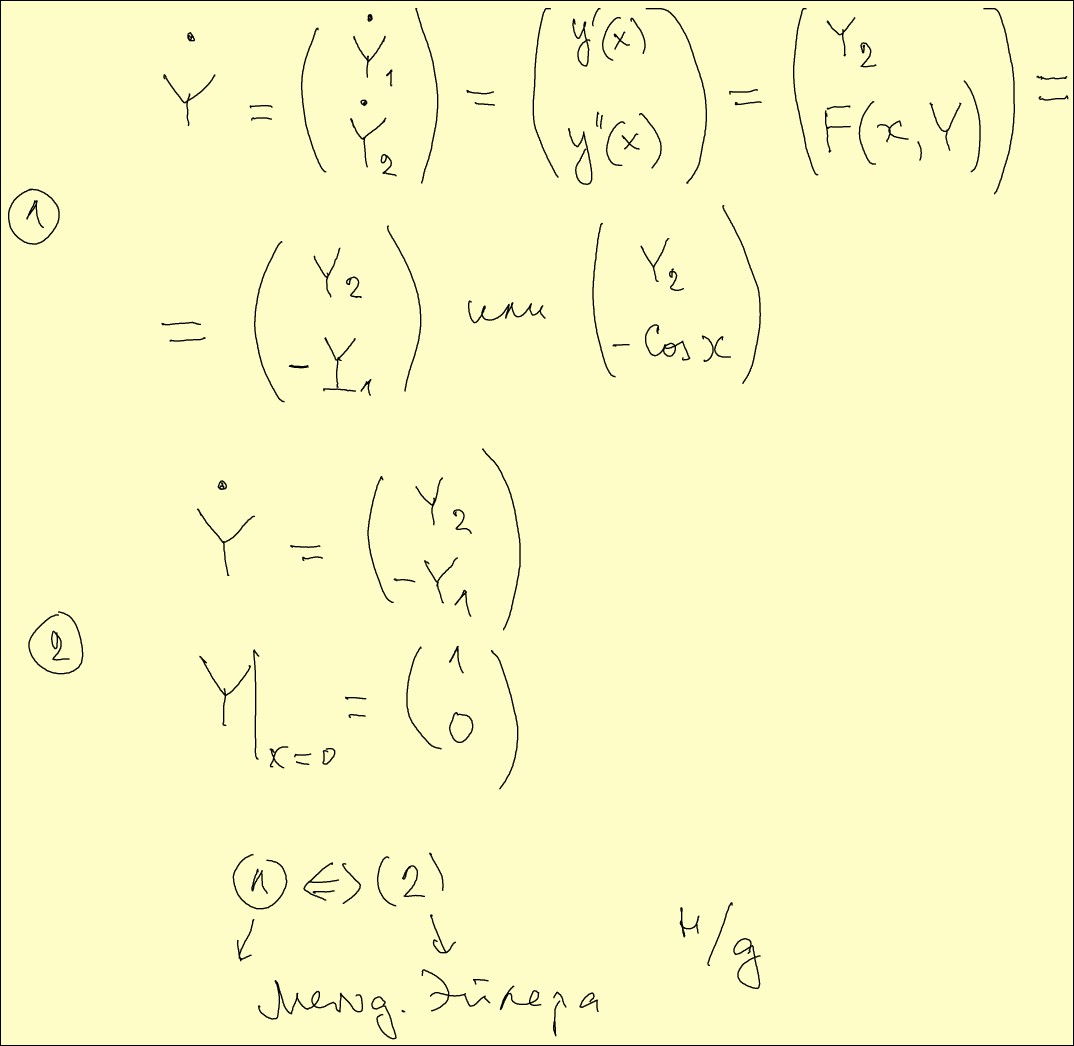 Ẏ = (Ẏ₁ Ẏ₂) = (y'(x) y''(x)) = (Y₂ F(x, Y)) =
①
= (Y₂ -Y₁) или (Y₂ -Cos x)
Ẏ = (Y₂ -Y₁)
②
Y|ₓ₌₀ = (1 0)
① <=> (2)
↙ ↓
Метод. Эйлера
н/g